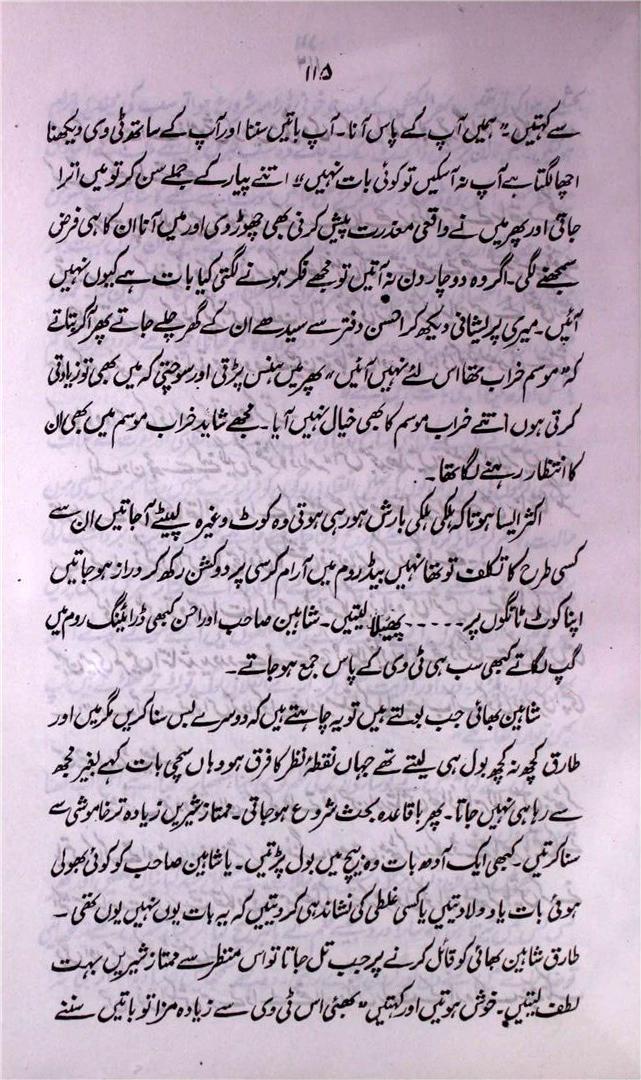 ۱۱۵
سے کہتیں۔ "ہمیں آپ کے پاس آنا۔ آپ باتیں سننا اور آپ کے ساتھ ٹی وی دیکھنا
اچھا لگتا ہے آپ نہ آسکیں تو کوئی بات نہیں" اتنے پیار کے جملے سن کر تو میں اترا
جاتی اور پھر میں نے واقعی معذرت پیش کرنی بھی چھوڑ دی اور میں آنا ان کا ہی فرض
سمجھنے لگی۔ اگر وہ دو چار دن نہ آتیں تو مجھے فکر ہونے لگتی کیا بات ہے کیوں نہیں
آئیں۔ میری پریشانی دیکھ کر احسن دفتر سے سیدھے ان کے گھر چلے جاتے پھر آکر بتاتے
کہ "موسم خراب تھا اس لئے نہیں آئیں" پھر میں ہنس پڑتی اور سوچتی کہ میں بھی تو زیادتی
کرتی ہوں اتنے خراب موسم کا بھی خیال نہیں آیا۔ مجھے شاید خراب موسم میں بھی ان
کا انتظار رہنے لگا تھا۔
اکثر ایسا ہوتا کہ ہلکی ہلکی بارش ہو رہی ہوتی وہ کوٹ وغیرہ لپیٹے آجاتیں ان سے
کسی طرح کا تکلف تو تھا نہیں بیڈ روم میں آرام کرسی پر دو کشن رکھ کر دراز ہو جاتیں
اپنا کوٹ ٹانگوں پر ----- پھیلا لیتیں۔ شاہین صاحب اور احسن کبھی ڈرائینگ روم میں
گپ لگاتے کبھی سب ہی ٹی وی کے پاس جمع ہو جاتے۔
شاہین بھائی جب بولتے ہیں تو یہ چاہتے ہیں کہ دوسرے بس سنا کریں مگر میں اور
طارق کچھ نہ کچھ بول ہی لیتے تھے جہاں نقطۂ نظر کا فرق ہو وہاں سچی بات کہے بغیر مجھ
سے رہا ہی نہیں جاتا۔ پھر باقاعدہ بحث شروع ہو جاتی۔ ممتاز شیریں زیادہ تر خاموشی سے
سنا کرتیں۔ کبھی ایک آدھ بات وہ بیچ میں بول پڑتیں۔ یا شاہین صاحب کو کوئی بھولی
ہوئی بات یاد دلا دتیں یا کسی غلطی کی نشاندہی کر دیتیں کہ یہ بات یوں نہیں یوں تھی۔
طارق شاہین بھائی کو قائل کرنے پر جب تل جاتا تو اس منظر سے ممتاز شیریں بہت
لطف لیتیں۔ خوش ہوتیں اور کہتیں "بھئی اس ٹی وی سے زیادہ مزا تو باتیں سننے